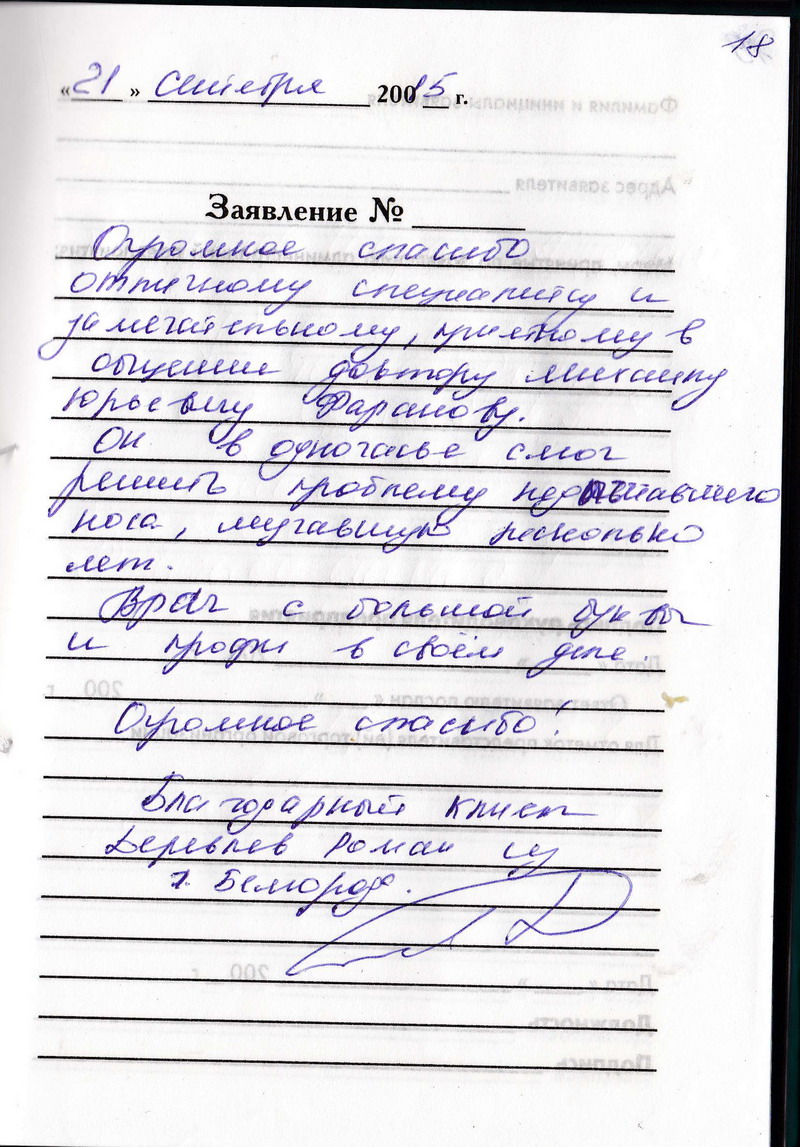 18
«21» сентября 20015 г.
Заявление №
Огромное спасибо
отличному специалисту и
замечательному, приятному в
общении доктору Михаилу
Юрьевичу Фаранову.
Он в одночасье смог
решить проблему недышавшего
носа, мучавшую несколько
лет.
Врач с большой буквы
и профи в своём деле.
Огромное спасибо!
Благодарный клиент
Деревлев Роман из
г. Белгорода.